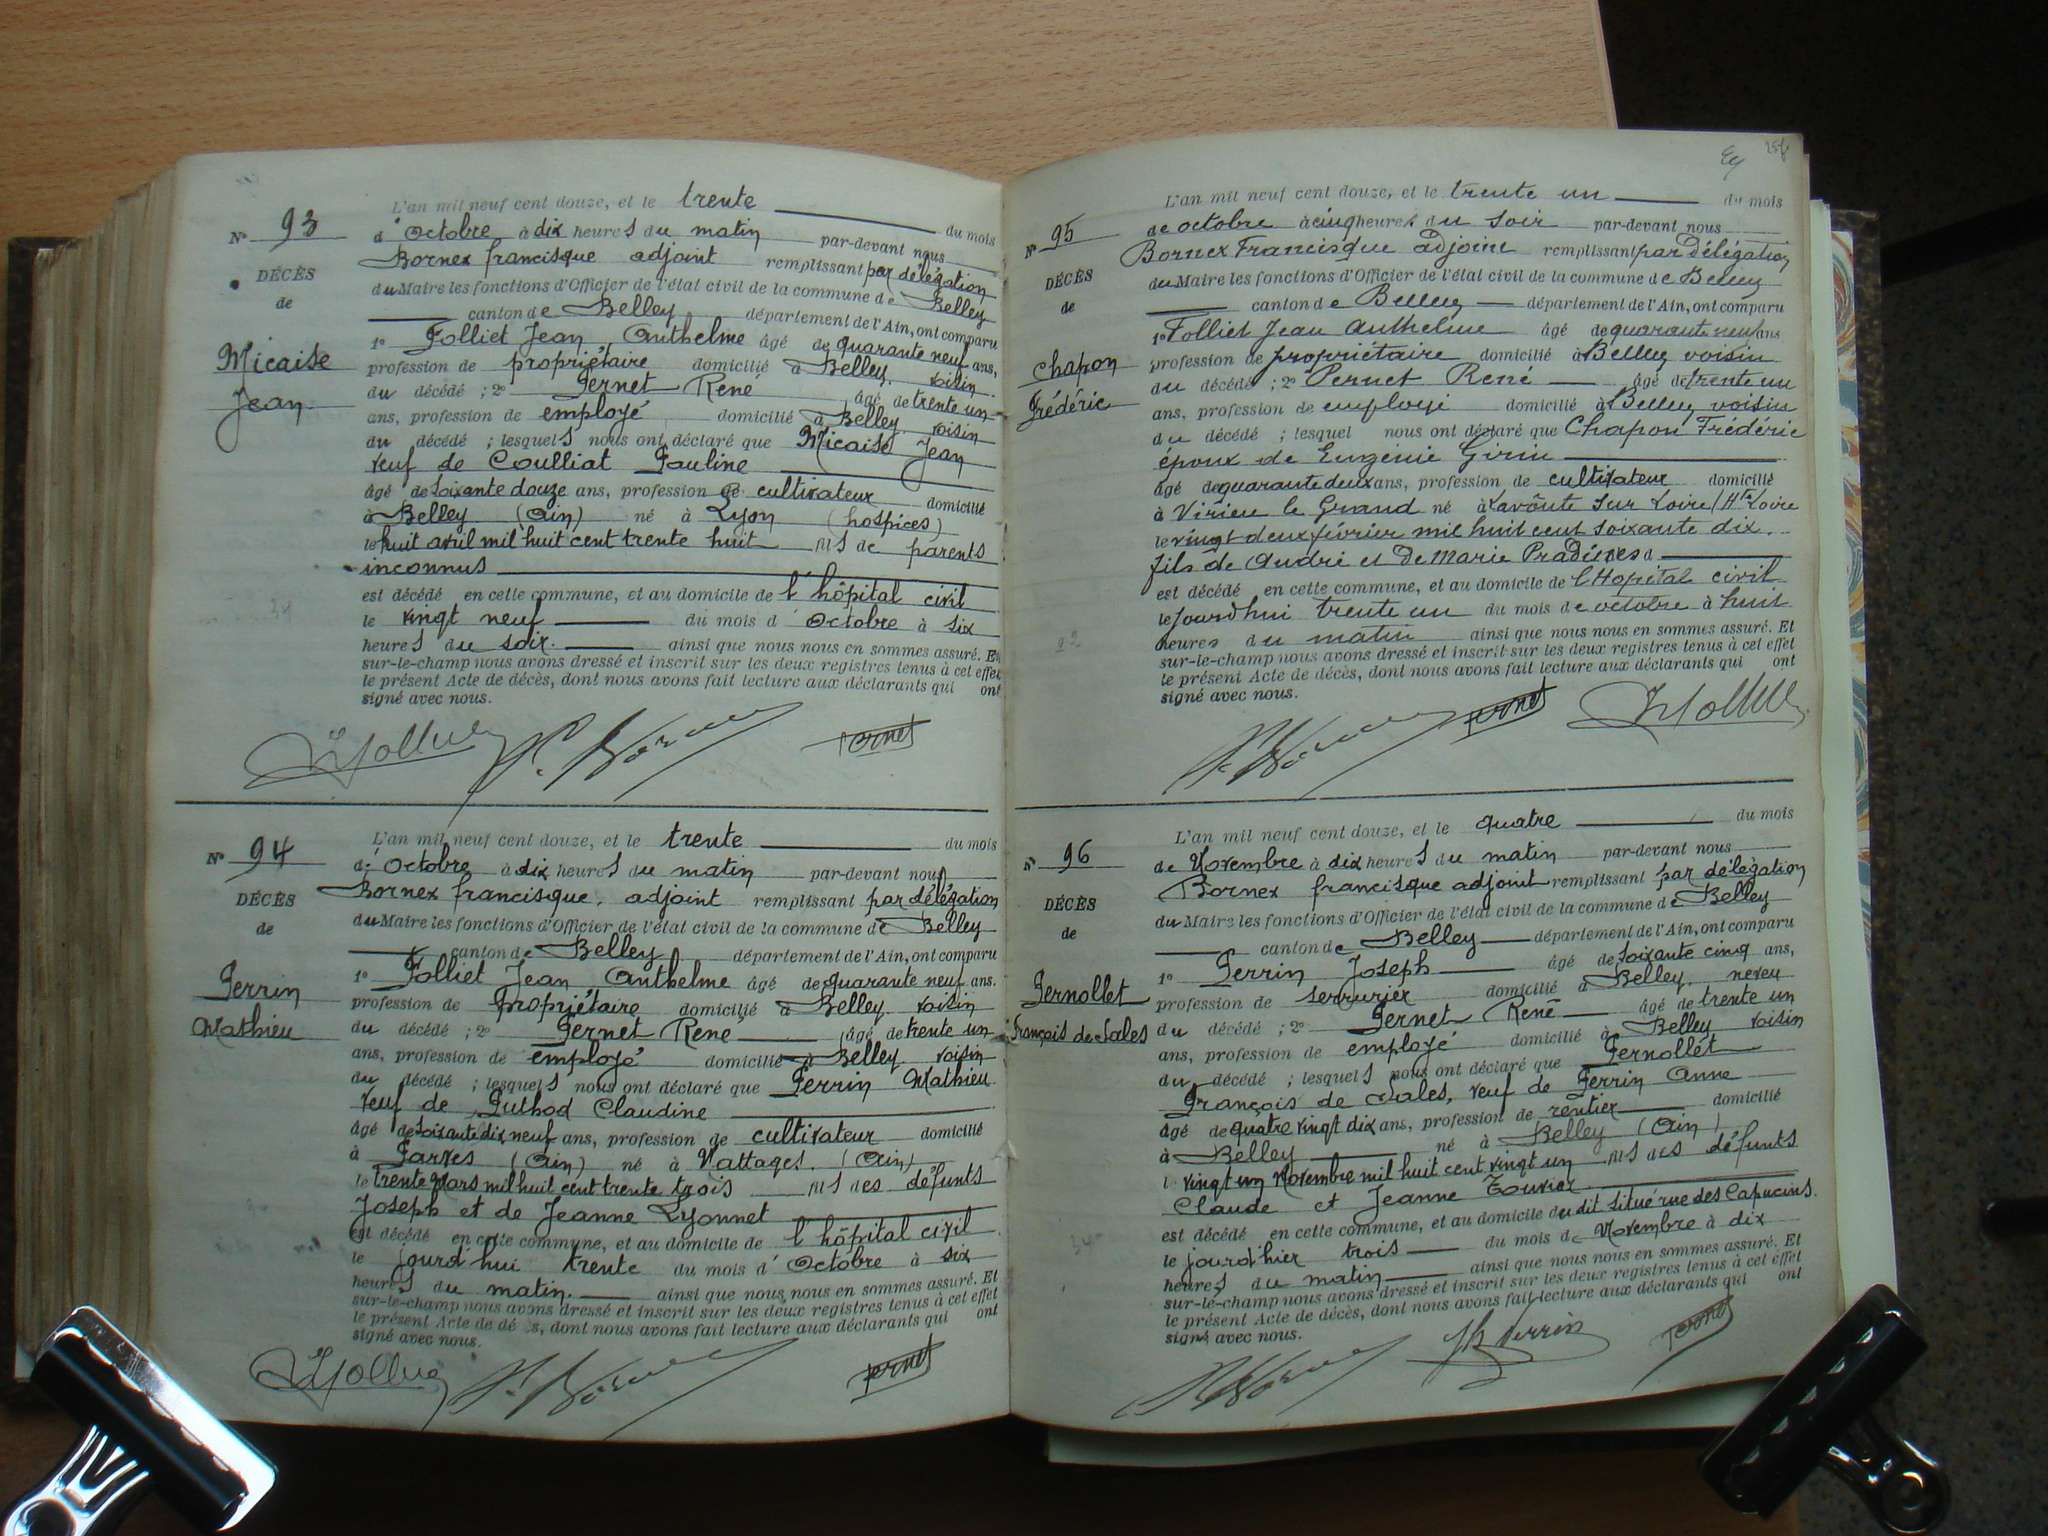 N° 93
DÉCÈS
de
Micaise
Jean
L'an mil neuf cent douze, et le trente du mois
d'Octobre à dix heures du matin par-devant nous
Bornex francisque adjoint remplissant par délégation
du Maire les fonctions d'Officier de l'état civil de la commune de Belley
canton de Belley département de l'Ain, ont comparu
1° Folliet Jean Anthelme âgé de quarante neuf ans,
profession de propriétaire domicilié à Belley, voisin
du décédé ; 2° Pernet René âgé de trente un
ans, profession de employé domicilié à Belley voisin
du décédé ; lesquels nous ont déclaré que Micaise Jean
veuf de Coulliat Pauline
âgé de soixante douze ans, profession de cultivateur domicilié
à Belley (Ain) né à Lyon (hospices)
le huit avril mil huit cent trente huit fils de parents
inconnus
est décédé en cette commune, et au domicile de l'hôpital civil
le vingt neuf du mois d'Octobre à six
heures du soir. ainsi que nous nous en sommes assuré. Et
sur-le-champ nous avons dressé et inscrit sur les deux registres tenus à cet effet
le présent Acte de décès, dont nous avons fait lecture aux déclarants qui ont
signé avec nous.
Pernet
N° 94
DÉCÈS
de
Perrin
Mathieu
L'an mil neuf cent douze, et le trente du mois
d'Octobre à dix heures du matin par-devant nous
Bornex francisque, adjoint remplissant par délégation
du Maire les fonctions d'Officier de l'état civil de la commune de Belley
canton de Belley département de l'Ain, ont comparu
1° Folliet Jean Anthelme âgé de quarante neuf ans.
profession de propriétaire domicilié à Belley voisin
du décédé ; 2° Pernet René âgé de trente un
ans, profession de employé domicilié à Belley voisin
du décédé ; lesquels nous ont déclaré que Perrin Mathieu
veuf de Puthod Claudine
âgé de soixante dix neuf ans, profession de cultivateur domicilié
à Parves (Ain) né à Nattages (Ain)
le trente Mars mil huit cent trente trois fils des défunts
Joseph et de Jeanne Lyonnet
est décédé en cette commune, et au domicile de l'hôpital civil
le jourd'hui trente du mois d'Octobre à six
heures du matin. ainsi que nous nous en sommes assuré. Et
sur-le-champ nous avons dressé et inscrit sur les deux registres tenus à cet effet
le présent Acte de décès, dont nous avons fait lecture aux déclarants qui ont
signé avec nous.
Pernet
N° 95
DÉCÈS
de
Chapon
Frédéric
L'an mil neuf cent douze, et le trente un du mois
de octobre à cinq heures du soir par-devant nous
Bornex Francisque adjoint remplissant par Délégation
du Maire les fonctions d'Officier de l'état civil de la commune de Belley
canton de Belley département de l'Ain, ont comparu
1° Folliet Jean Anthelme âgé de quarante neuf ans
profession de propriétaire domicilié à Belley voisin
du décédé ; 2° Pernet René âgé de trente un
ans, profession de employé domicilié à Belley voisin
du décédé ; lesquel nous ont déclaré que Chapon Frédéric
époux de Eugénie Girin
âgé de quarante deux ans, profession de cultivateur domicilié
à Virieu le Grand né à Lavôute sur Loire (Hte Loire
le vingt deux février mil huit cent soixante dix.
fils de André et De Marie Pradines
est décédé en cette commune, et au domicile de l'Hopital civil
le jourdhui trente un du mois de octobre à huit
heures du matin ainsi que nous nous en sommes assuré. Et
sur-le-champ nous avons dressé et inscrit sur les deux registres tenus à cet effet
le présent Acte de décès, dont nous avons fait lecture aux déclarants qui ont
signé avec nous.
Pernet
N° 96
DÉCÈS
de
Pernollet
François de Sales
L'an mil neuf cent douze, et le quatre du mois
de Novembre à dix heures du matin par-devant nous
Bornex francisque adjoint remplissant par délégation
du Maire les fonctions d'Officier de l'état civil de la commune de Belley
canton de Belley département de l'Ain, ont comparu
1° Perrin Joseph âgé de soixante cinq ans,
profession de serrurier domicilié à Belley, neveu
du décédé ; 2° Pernet René âgé de trente un
ans, profession de employé domicilié à Belley voisin
du décédé ; lesquels nous ont déclaré que Pernollet
François de Sales, veuf de Perrin Anne
âgé de quatre vingt dix ans, profession de rentier domicilié
à Belley né à Belley (Ain)
le vingt un Novembre mil huit cent vingt un fils des défunts
Claude et Jeanne Touvier
est décédé en cette commune, et au domicile du dit situé rue des Capucins.
le jourd'hier trois du mois de Novembre à dix
heures du matin ainsi que nous nous en sommes assuré. Et
sur-le-champ nous avons dressé et inscrit sur les deux registres tenus à cet effet
le présent Acte de décès, dont nous avons fait lecture aux déclarants qui ont
signé avec nous.
Perrin
Pernet